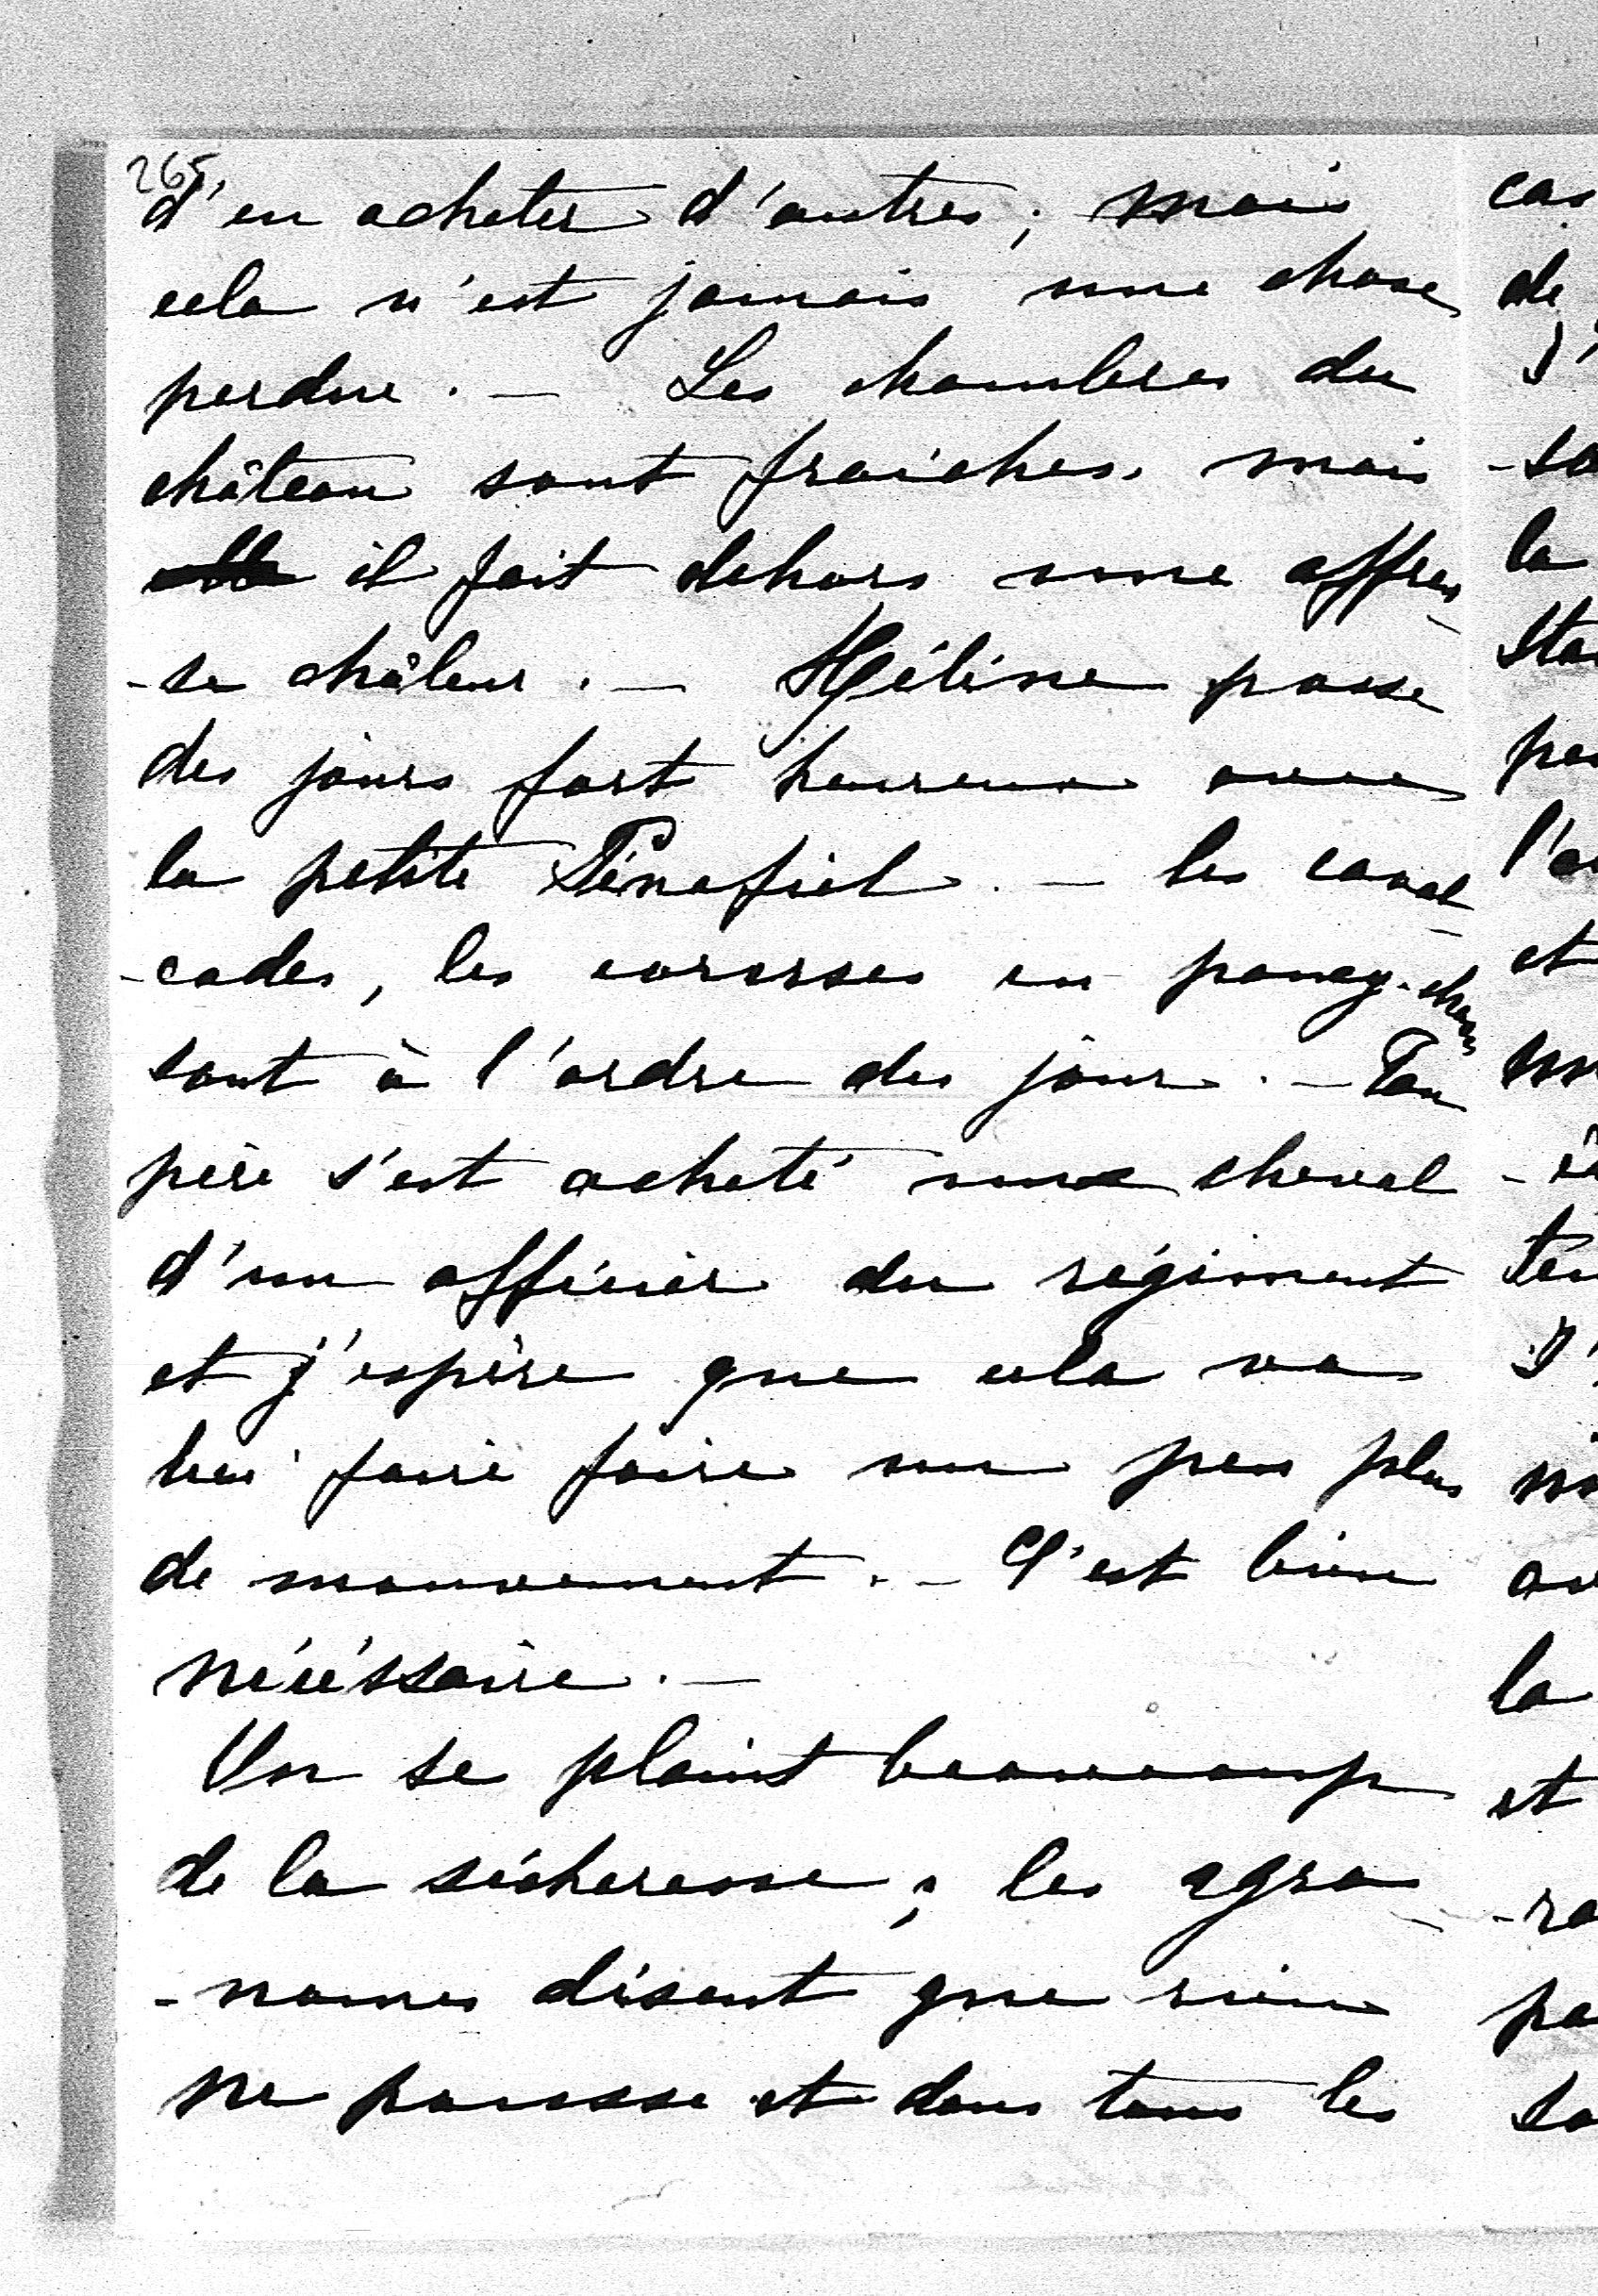 265
d'en acheter d'autres; mais
cela n'est jamais une chose
perdue. — Les chambres du
château sont fraîches. mais
il fait dehors une affreu
-se châleur. — Hélène passe
des jours fort heureux avec
la petite Pénafiel. — les caval
-cades, les courses en poney-chais
sont à l'ordre du jour. — Ton
père s'est acheté un cheval
d'un officier du régiment
et j'espère que cela va
lui faire faire un peu plus
de mouvement. — C'est bien
nécéssaire. —
On se plaint beaucoup
de la sécheresse; les agro
-nomes disent que rien
ne pousse et dans tous les
cas
de
J'
-so
la
Sta
pa
l'a
et
ten
J'
la
et
-ro
pa
so